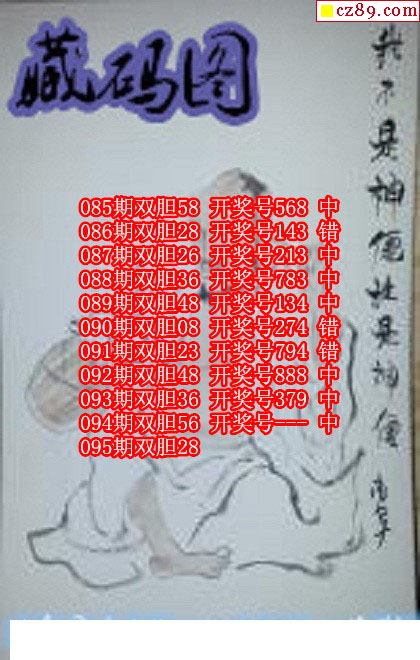 cz89.com
藏码图
085期双胆58 开奖号568 中
086期双胆28 开奖号143 错
087期双胆26 开奖号213 中
088期双胆36 开奖号783 中
089期双胆48 开奖号134 中
090期双胆08 开奖号274 错
091期双胆23 开奖号794 错
092期双胆48 开奖号888 中
093期双胆36 开奖号379 中
094期双胆56 开奖号--- 中
095期双胆28
我不是神
是神